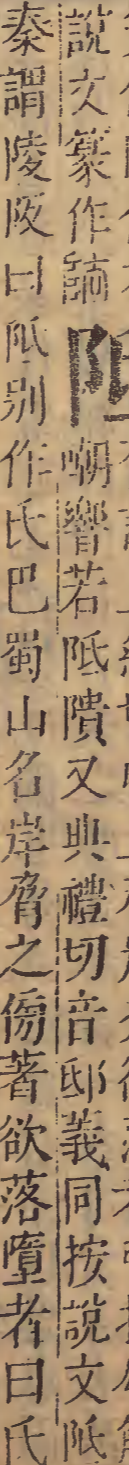 說文篆作嘲響若阺隤又典禮切音邸義同按說文阺
秦謂陵阪曰阺別作氏巴蜀山名岸脅之傍著欲落墮者曰氏